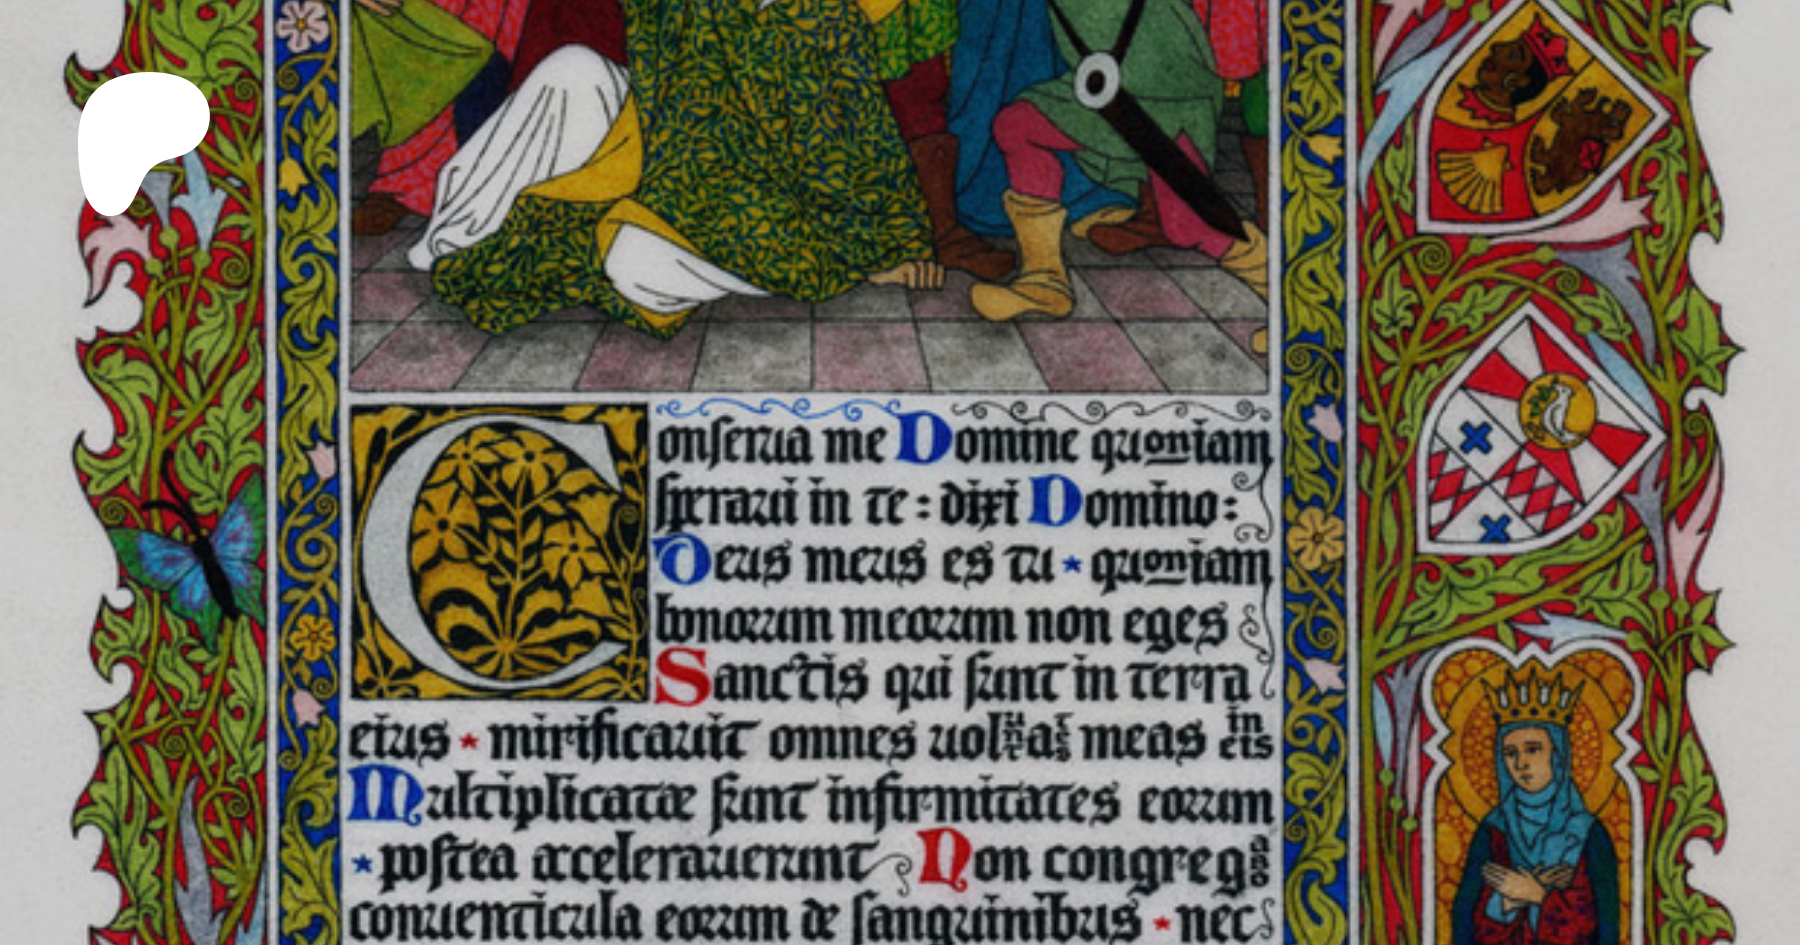 Conserva me Domine quoniam
speravi in te : dixi Domino :
Deus meus es tu * quoniam
bonorum meorum non eges
Sanctis qui sunt in terra
eius * mirificavit omnes voluntates meas in eis
Multiplicatæ sunt infirmitates eorum
* postea acceleraverunt Non congregabo
conventicula eorum de sanguinibus * nec